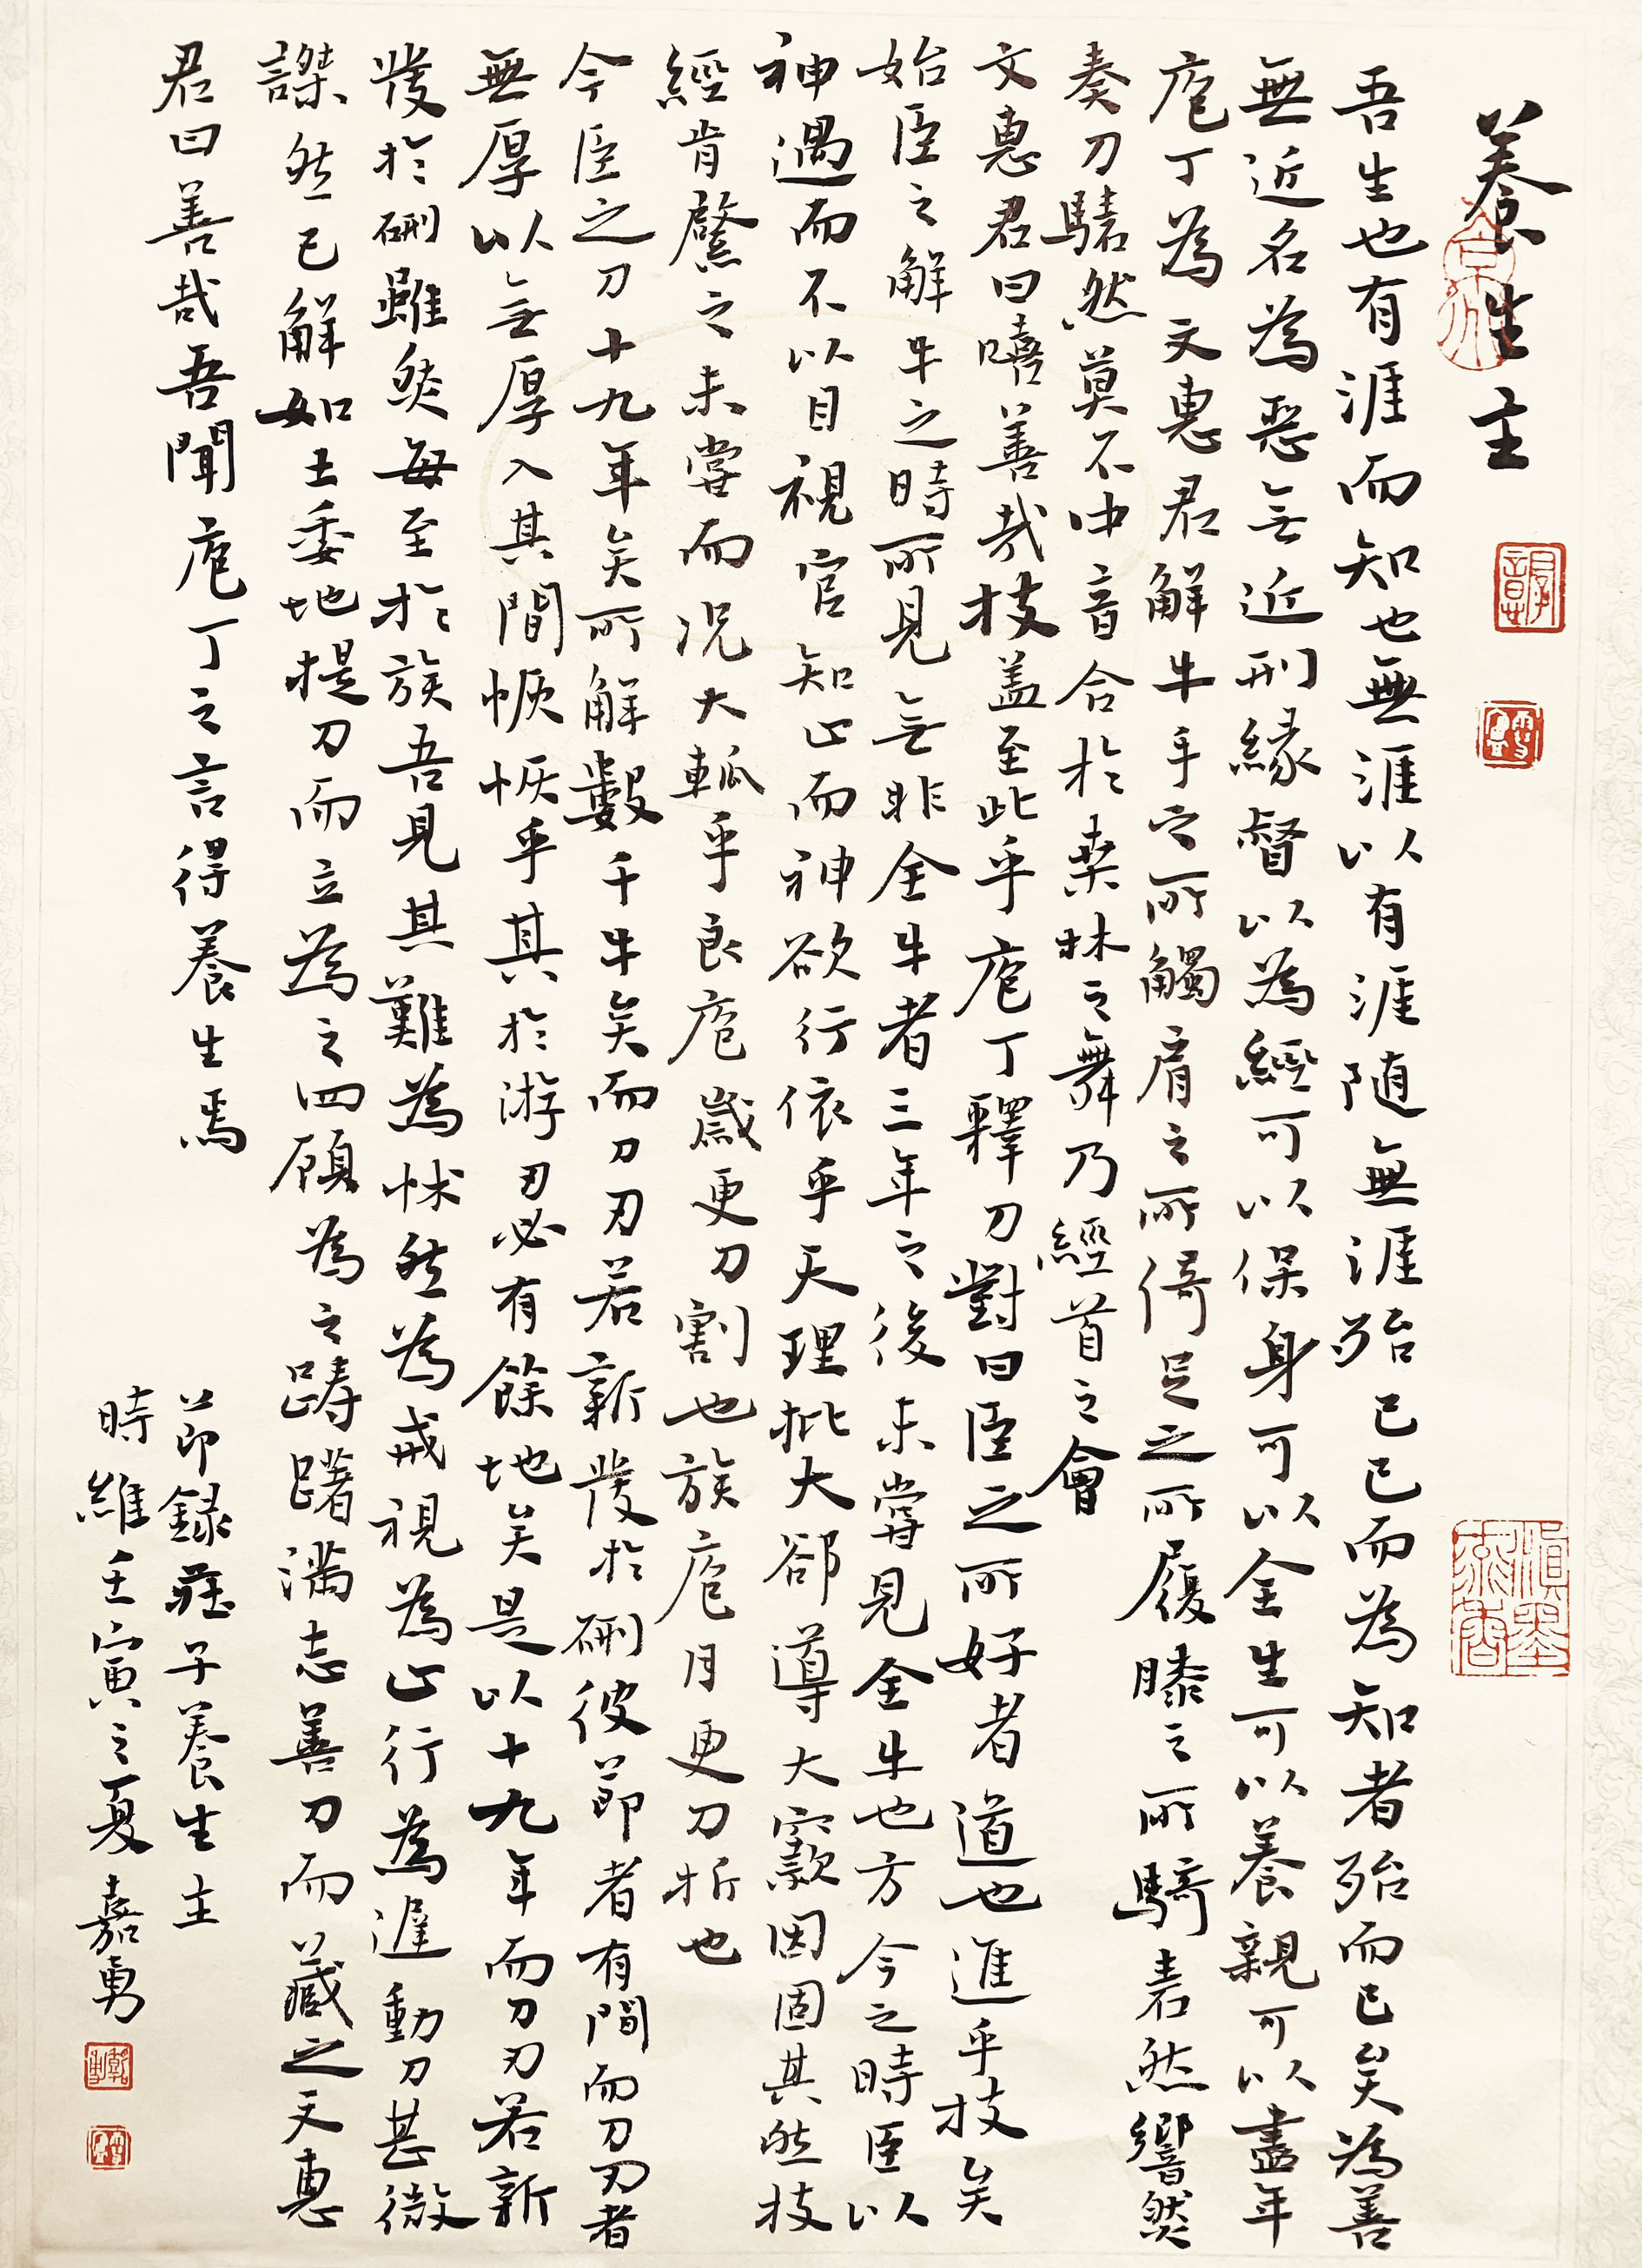 養生主
吾生也有涯而知也無涯以有涯随無涯殆已已而為知者殆而已矣為善
無近名為惡無近刑緣督以為經可以保身可以全生可以養親可以盡年
庖丁為文惠君解牛手之所觸肩之所倚足之所履膝之所騎砉然響然
奏刀騞然莫不中音合於桑林之舞乃經首之會
文惠君曰嘻善哉技蓋至此乎庖丁釋刀對曰臣之所好者道也進乎技矣
始臣之解牛之時所見無非全牛者三年之後未嘗見全牛也方今之時臣以
神遇而不以目視官知止而神欲行依乎天理批大郤導大窾因固其然技
經肯綮之未嘗而況大軱乎良庖歲更刀割也族庖月更刀折也
今臣之刀十九年矣所解數千牛矣而刀刃若新發於硎彼節者有間而刀刃者
無厚以無厚入其間恢恢乎其於游刃必有餘地矣是以十九年而刀刃若新
發於硎雖然每至於族吾見其難為怵然為戒視為止行為遲動刀甚微
謋然已解如土委地提刀而立為之四顧為之躊躇滿志善刀而藏之文惠
君曰善哉吾聞庖丁之言得養生焉
節錄莊子養生主
時維壬寅之夏嘉勇